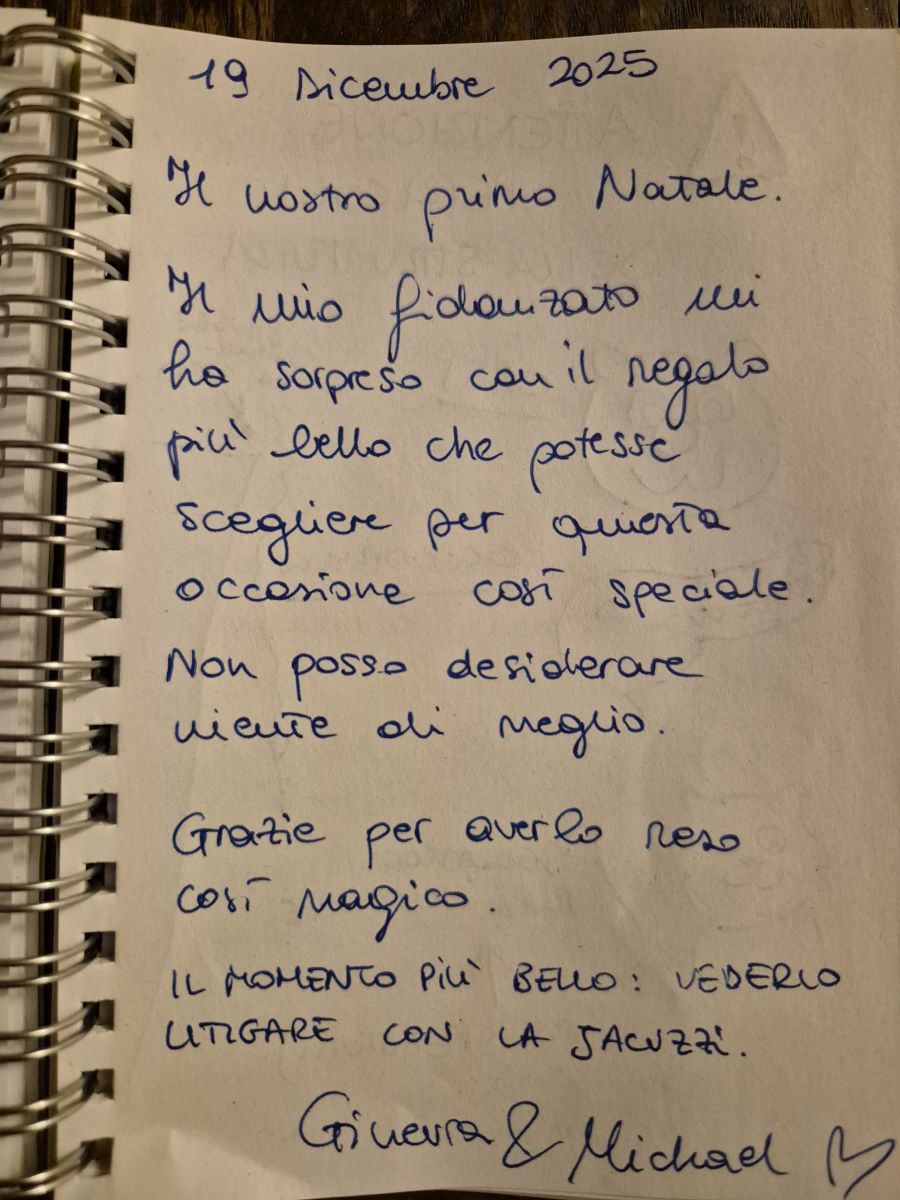 19 Dicembre 2025
Il nostro primo Natale.
Il mio fidanzato mi
ha sorpreso con il regalo
più bello che potesse
scegliere per questa
occasione così speciale.
Non posso desiderare
niente di meglio.
Grazie per averlo reso
così magico.
IL MOMENTO PIÙ BELLO: VEDERLO
LITIGARE CON LA JACUZZI.
Ginevra & Michael